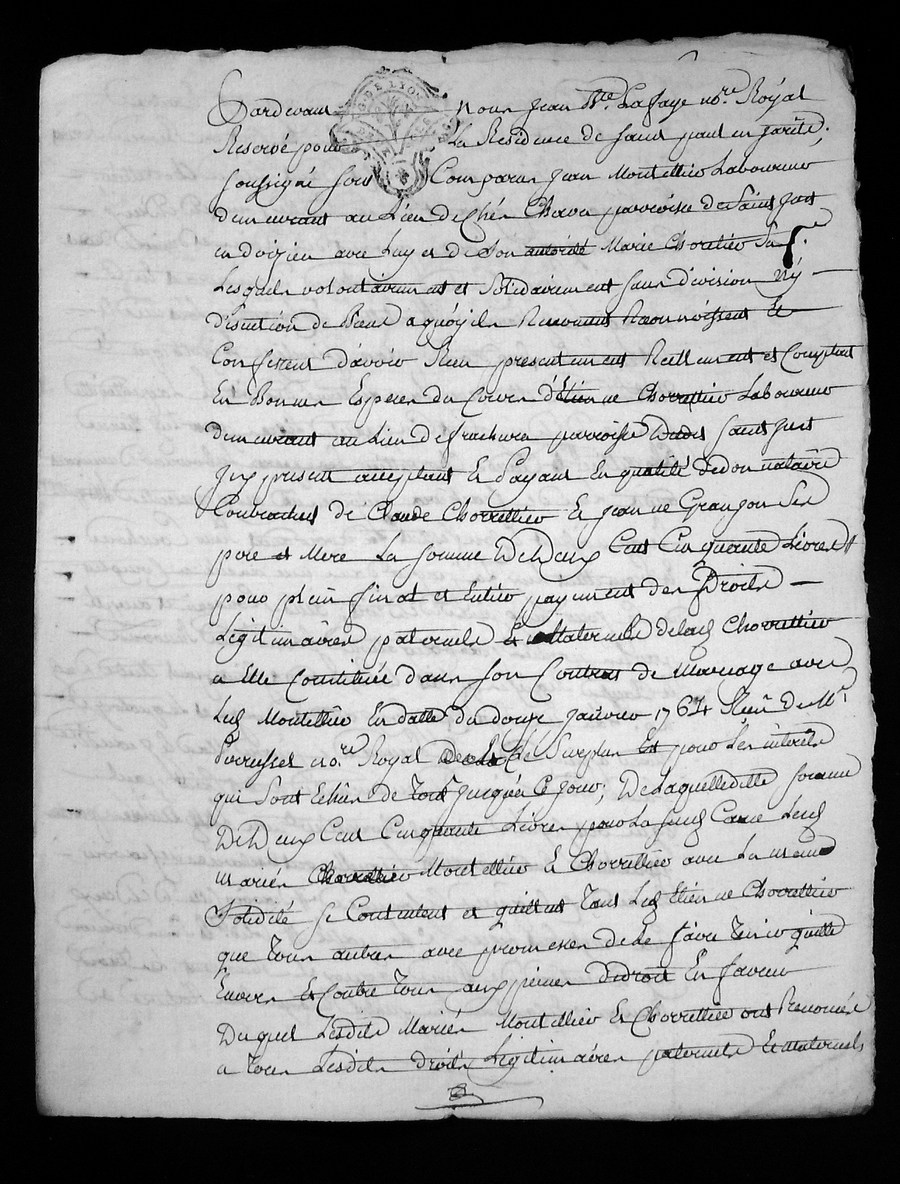 Pardevant Nous Jean Bte. Lafaye nore. Royal
Reservé pour La Residence de Saint paul en Jarêts,
soussigné sont Comparus Jean Montellier Laboureur
demeurant au Lieu de Chez parroisse de Saint Just
en doizieu avec Luy et de Son autorité Marie Chorellier Sa fe.
Lesquels volontairement et Solidairement sans division ny
discution de Biens a quoy ils Renoncent Reconnoissent Et
Confessent d'avoir Reçu presentement Reellement et Comptant
En Bonnes Especes du Cours d'Etienne Chorrellier Laboureur
demeurant au Lieu de parroisse Dudit Saint Just
Icy present acceptant Et payant En qualité de donnataire
Contractuel de Claude Chorrellier Et Jeanne Granjon Ses
pere et Mere La somme De Deux Cent Cinquante Livres
pour plein finat et Entier payement des Droits
Legitimaires paternels Et Maternels de lad. Chorrellier
a Elle Constitués dans son Contrat de Mariage avec
Led. Montellier En datte du douze Janvier 1764 Reçu De Me.
nore. Royal Le Surplus Et pour Les interets
qui Sont Echus de tout Jusqu'à Ce Jour; De Laquelleditte somme
De Deux Cent Cinquante Livres pour La susd. Cause Lesd.
mariés Montellier Et Chorrellier avec La meme
Solidité se Contentent et quittent tant Led. Etienne Chorrellier
que tous autres avec promesses de Le faire tenir quitte
Envers Et Contre tous aux peines de droit En faveur
Duquel Lesdits Mariés Montellier Et Chorrellier ont Renoncés
a tous Lesdits droits Legitimaires paternels Et Maternels